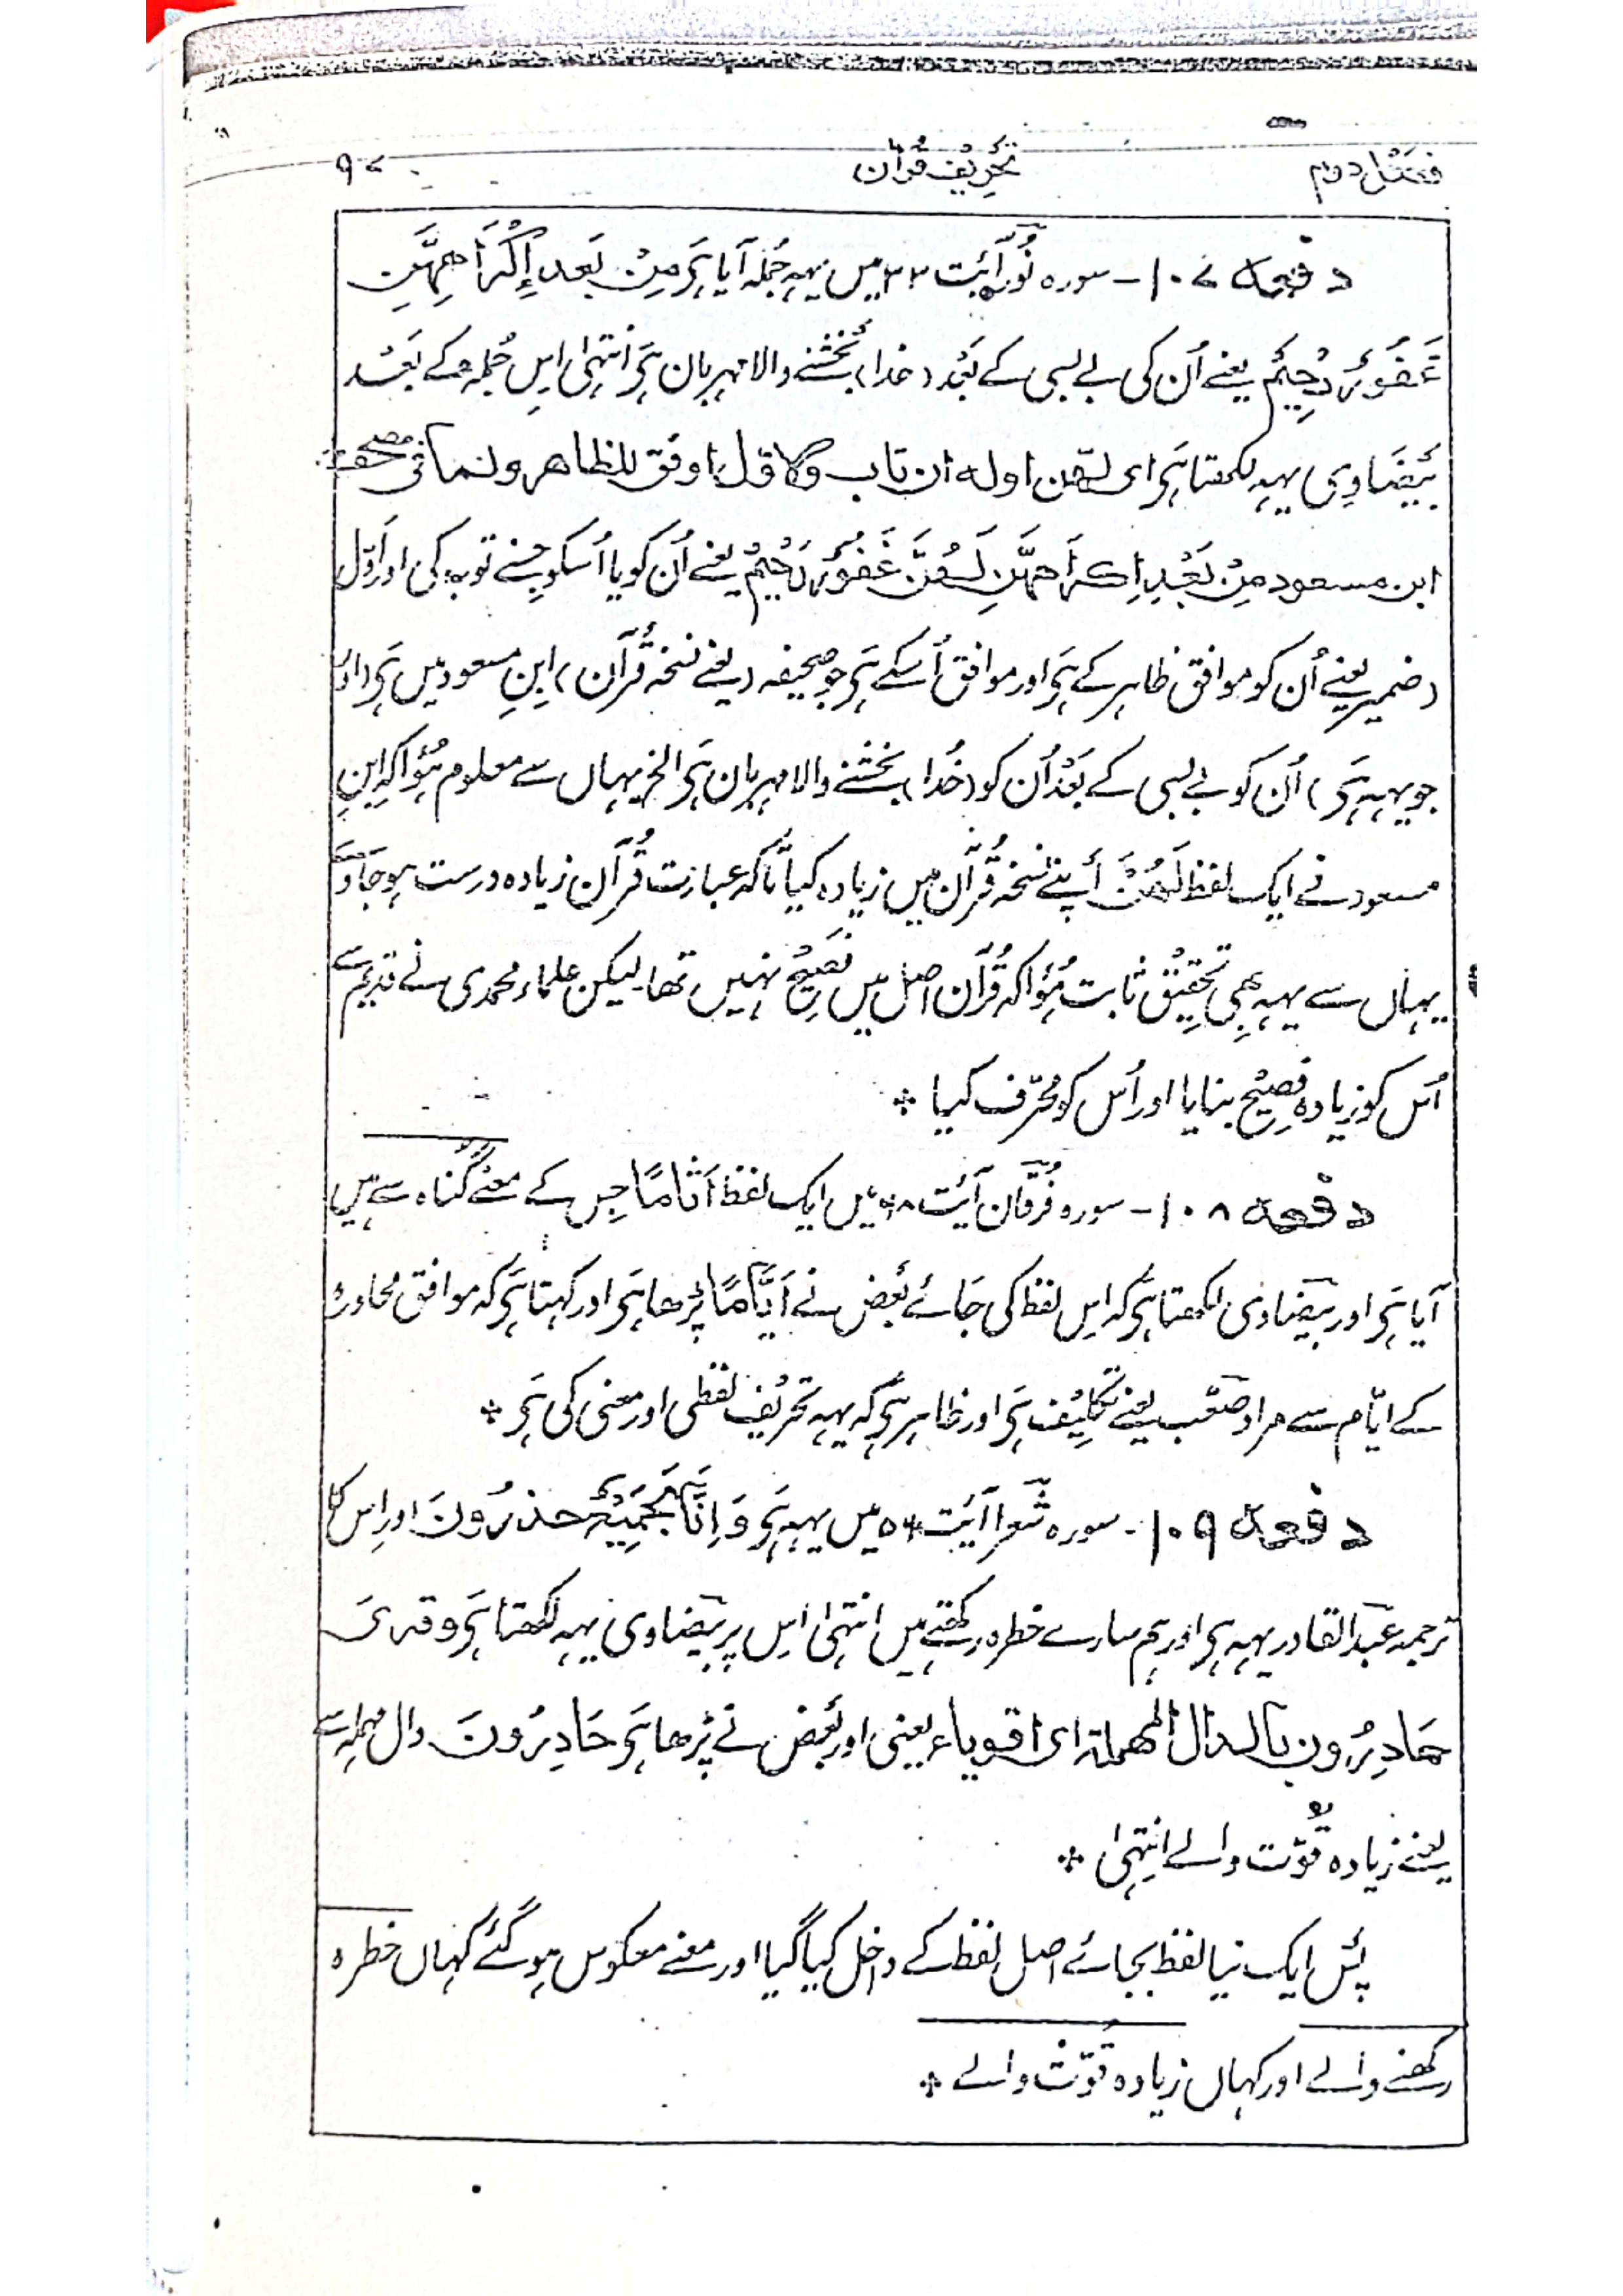 فصل دوم تحریف قرآن ۹۷
دفعہ ۱۰۷ - سورہ نور آیت ۳۳ میں یہہ جملہ آیا ہَے مِنْ بَعدِ إِکْرَاهِهِنَّ
غَفُوْرٌ رَّحِیْمٌ یعنے اُن کی بے بسی کے بعد (خدا) بخشنے والا مہربان ہَے انتہیٰ اِس جُملہ کے بَعْد
بَیْضَاوِی یہہ لکھتا ہَے ای لھن اولہ ان تاب والاول اوفق للظاھر ولما فی مصحف
ابن مسعود مِنْ بَعْدِ اِکْرَاهِهِنَّ لَهُنَّ غَفُوْرٌ رَحِیْمٌ یعنے اُن کو یا اُسکو جِسنے توبہ کی اور اَوّل
(ضمیر یعنے اُن کو موافق ظاہر کے ہَے اور موافق اُسکے ہَے جو صحیفہ (یعنے نسخہ قُرآن) ابنِ مسعود میں ہَے (اور
جو یہہ ہَے) اُن کو بے بسی کے بَعْد اُن کو (خُدا) بخشنے والا مہربان ہَے الخ یہاں سے معلوم ہُوا کہ ابنِ
مسعود نے ایک لفظ لَهُنَّ اَپنے نسخہ قُرآن میں زیادہ کیا تاکہ عبارت قُرآن زیادہ درست ہو جَاوے
یہاں سے یہہ بھی تحقِیْق ثابت ہُوا کہ قُرآن اصل میں فصِیحْ نہیں تھا لیکن علماء محمدی نے قدیم سے
اُس کو زیادہ فصِیْح بنایا اور اُس کو مُحَرّف کیا *
دفعہ ۱۰۸ - سورہ فُرقان آیَت ۶۸ میں ایک لفظ اَثَامًا جِس کے معنے گناہ سے ہیں
آیا ہَے اور بیضاوی لکھتا ہَے کہ اِس لفظ کی جَائے بَعْض نے اَیَّامًا پڑھا ہَے اور کہتا ہَے کہ موافق محاورہ
کے ایّام سے مراد صَعْب یعنے تکلِیْف ہَے اور ظاہر ہَے کہ یہہ تحریف لفظی اور معنی کی ہَے *
دفعہ ۱۰۹ - سورہ شعرا آیَت ۵۶ میں یہہ ہَے وَ اِنَّا لَجَمِیْعٌ حٰذِرُونَ اور اِس کا
ترجمہ عبد القادر یہہ ہَے اور ہم سارے خطرہ رکھتے ہیں انتہیٰ اِس پر بَیْضاوی یہہ لکھتا ہَے و قری
حَادِرُون بالدال المھملۃ ای اقویاء یعنی اور بَعض نے پڑھا ہَے حَادِرُونَ دال مہملہ سے
یعنے زیادہ قُوّت والے انتِہیٰ *
پَس ایک نیا لفظ بجائے اصل لفظ کے داخِل کیا گیا اور معنے معکوس ہو گئے کہاں خطرہ
رکھنے والے اور کہاں زیادہ قُوّت والے *